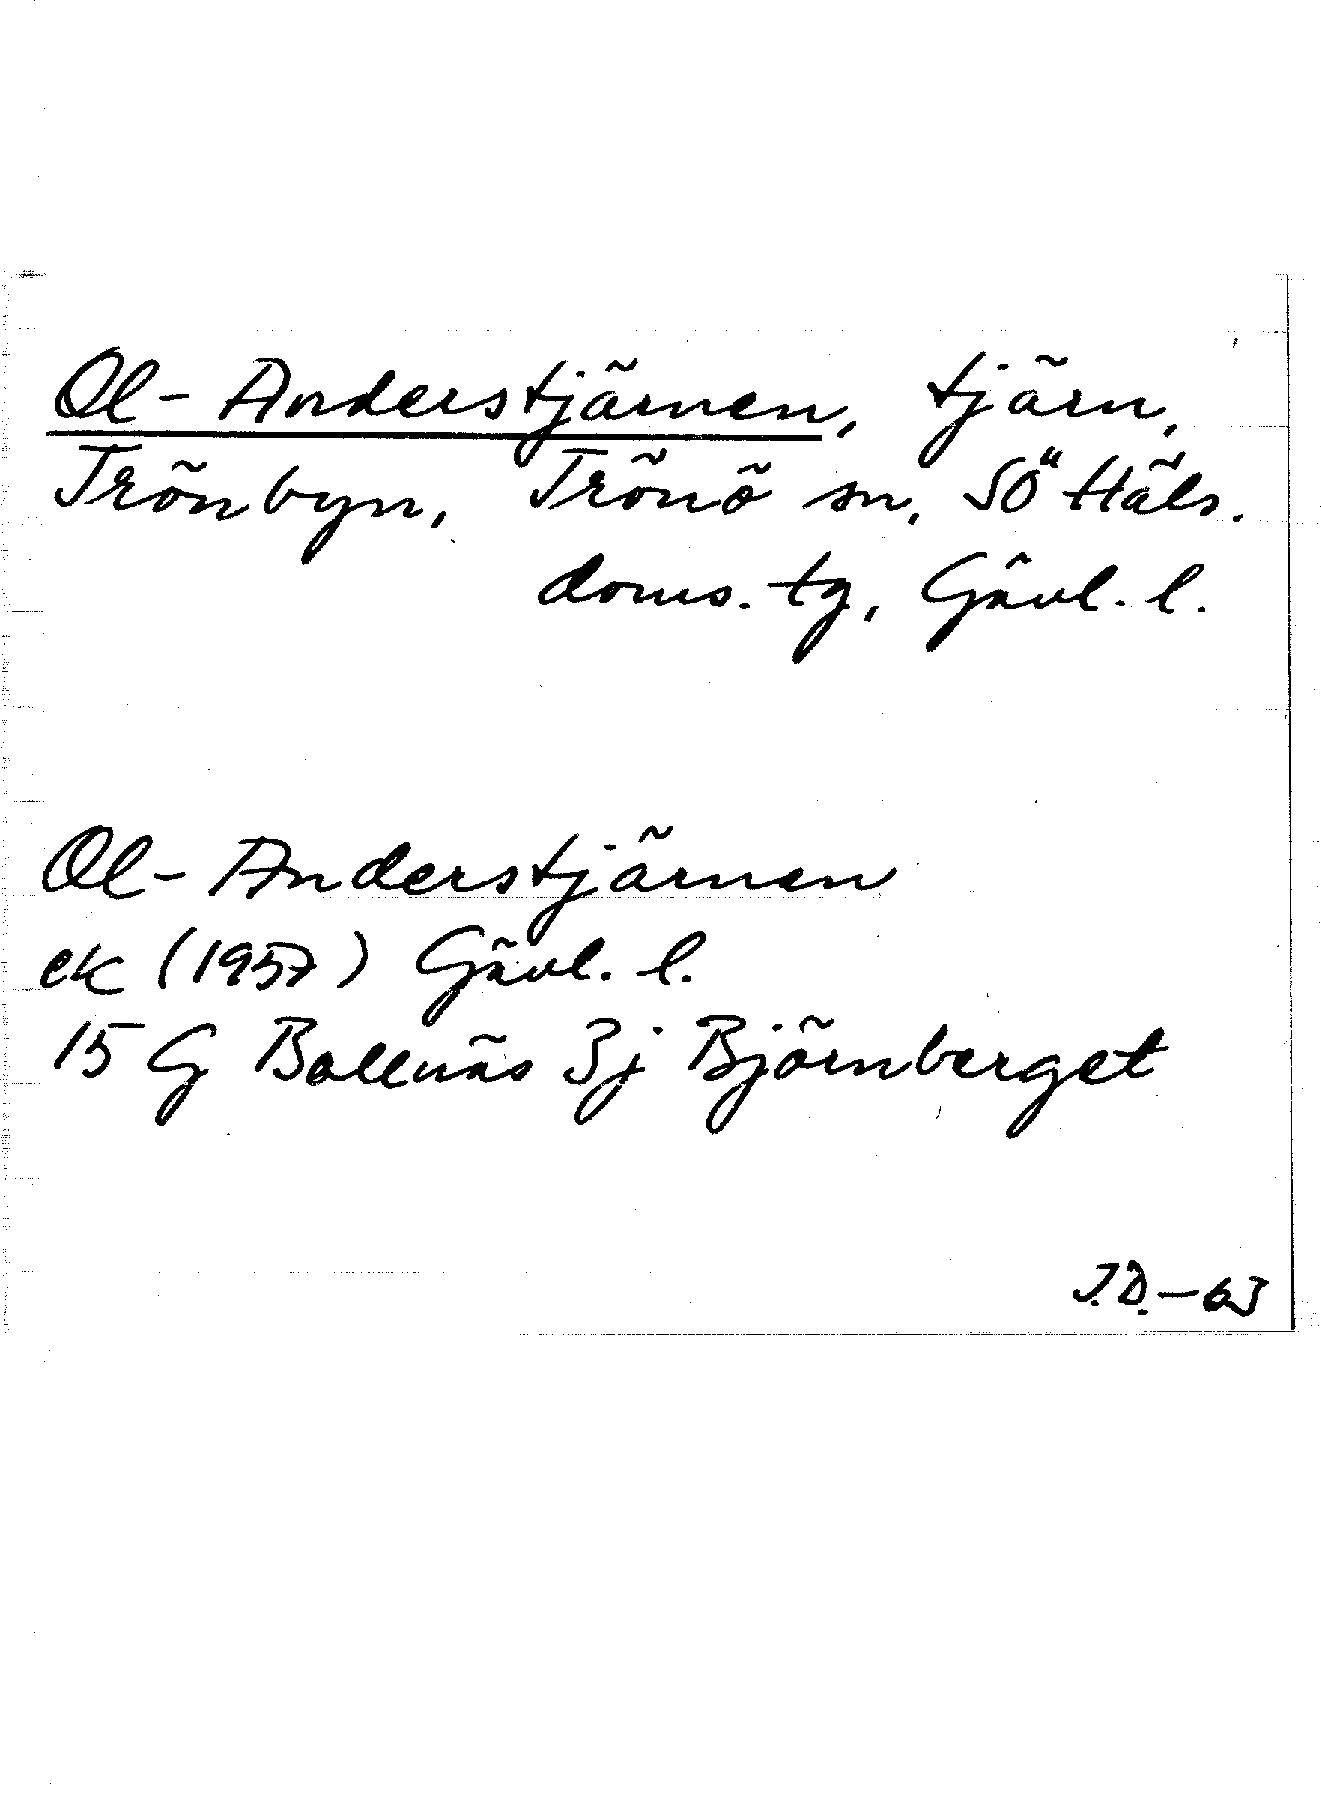 Ol-Anderstjärnen, tjärn,
Trönbyn, Trönö sn, SÖ Häls.
doms. tg, Gävl. l.
Ol-Anderstjärnen
ek (1957) Gävl. l.
15 G Bollnäs 3j Björnberget
J.D.-63